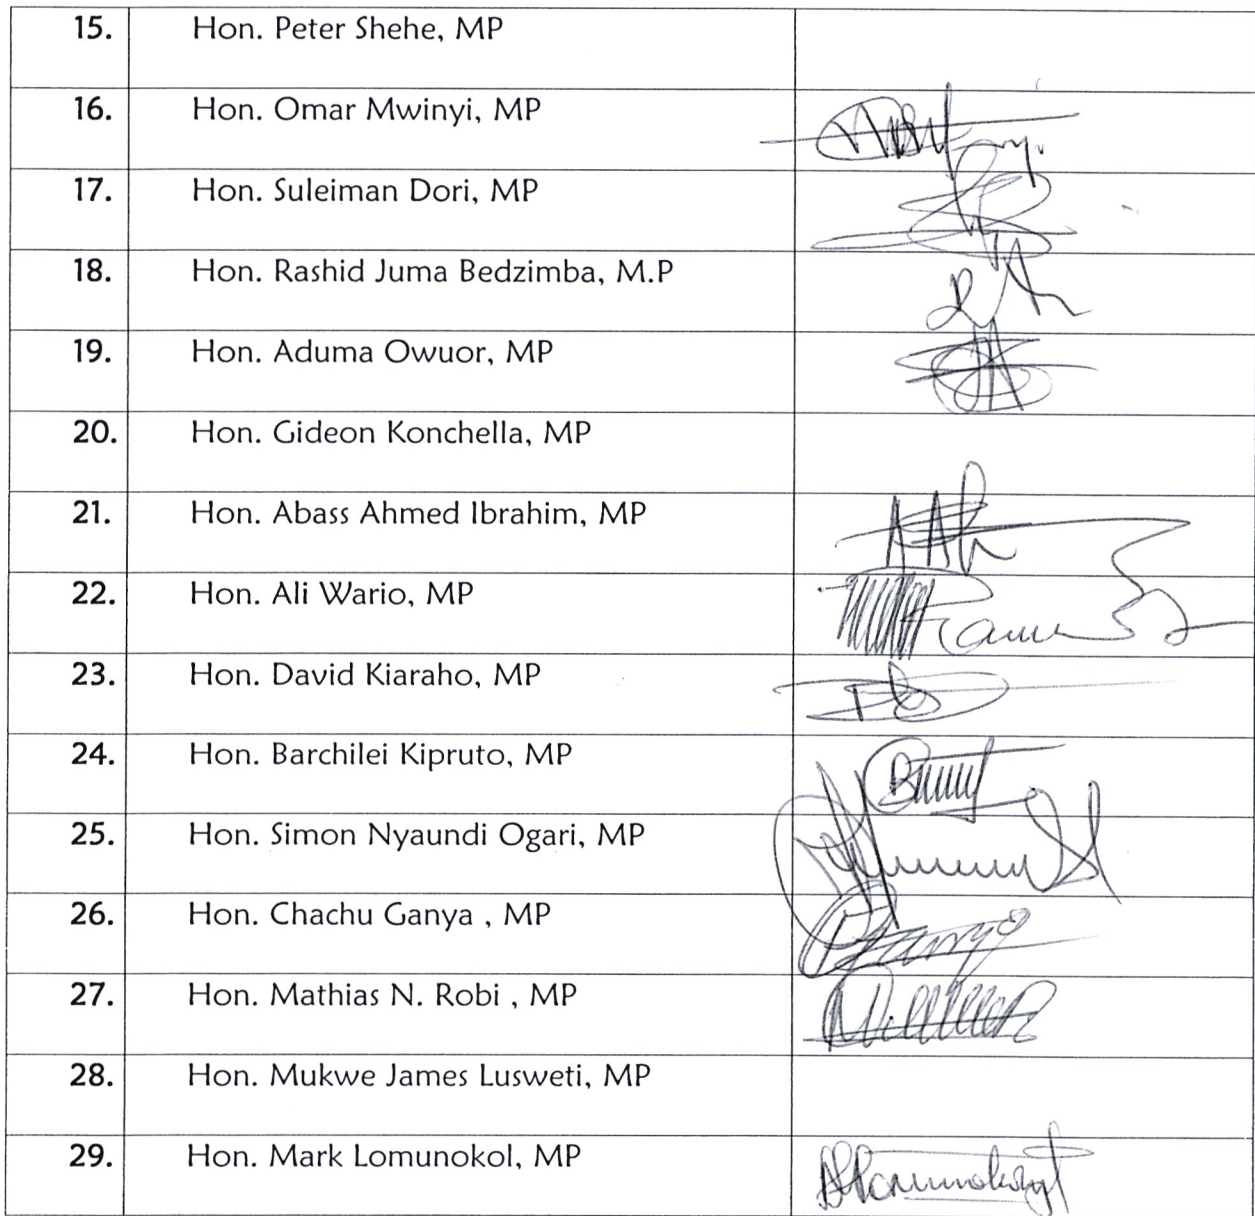 15. Hon. Peter Shehe, MP
16. Hon. Omar Mwinyi, MP
17. Hon. Suleiman Dori, MP
18. Hon. Rashid Juma Bedzimba, M.P
19. Hon. Aduma Owuor, MP
20. Hon. Gideon Konchella, MP
21. Hon. Abass Ahmed Ibrahim, MP
22. Hon. Ali Wario, MP
23. Hon. David Kiaraho, MP
24. Hon. Barchilei Kipruto, MP
25. Hon. Simon Nyaundi Ogari, MP
26. Hon. Chachu Ganya , MP
27. Hon. Mathias N. Robi , MP
28. Hon. Mukwe James Lusweti, MP
29. Hon. Mark Lomunokol, MP